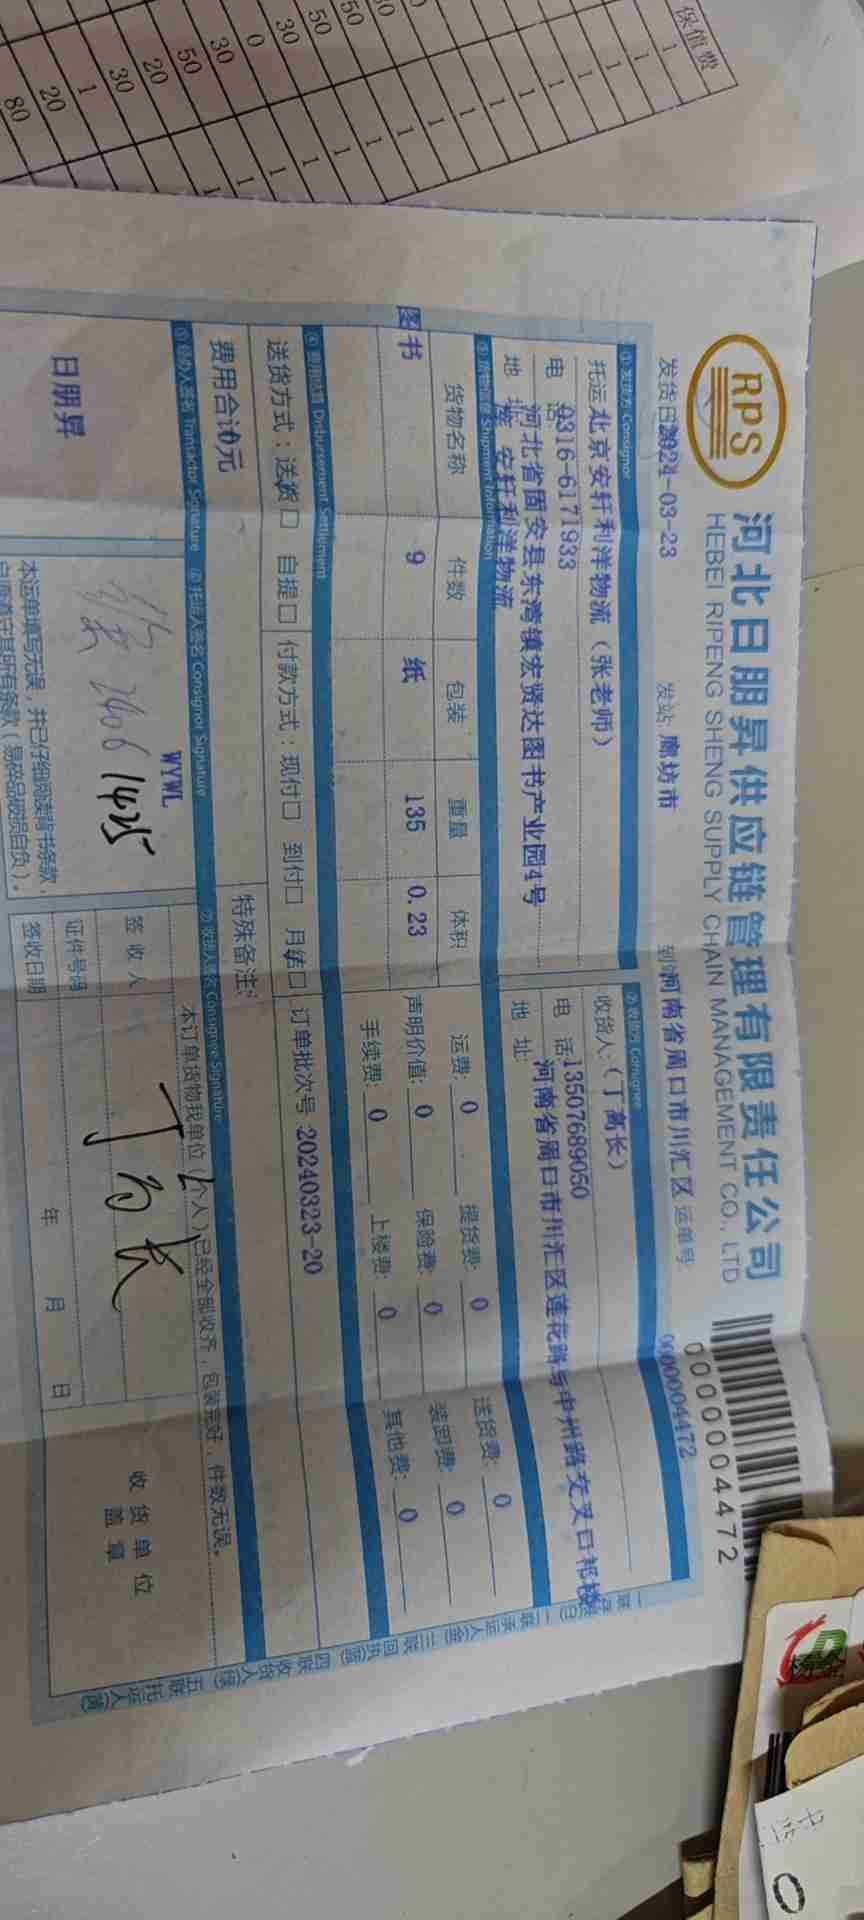 保值费
RPS
河北日朋昇供应链管理有限责任公司
HEBEI RIPENG SHENG SUPPLY CHAIN MANAGEMENT CO., LTD
0000004472
发货日期 2024-03-23 发站: 廊坊市 到 河南省周口市川汇区 运单号: 0000004472
①发货方 Consignor ②收货方 Consignee
托运 北京安轩利洋物流（张老师） 收货人:（丁高长）
电 话 0316-6171933 电 话: 13507689050
地 址 河北省固安县东湾镇宏贤达图书产业园4号 地 址: 河南省周口市川汇区莲花路与中州路交叉口祁楼
安轩利洋物流
③货物信息 Shipment Information
货物名称 件数 包装 重量 体积 运费: 0 提货费: 0 送货费: 0
图书 9 纸 135 0.23 声明价值: 0 保险费: 0 装卸费: 0
手续费: 0 上楼费: 0 其他费: 0
④费用结算 Disbursement Settlement
送货方式：送货□ 自提□ 付款方式：现付□ 到付□ 月结□ 订单批次号 20240323-20
费用合计0元 特殊备注:
⑤经办人签名 Transactor Sonature ⑥托运人签名 Consignor Signature ⑦收货人签名 Consignee Signature
日朋昇
WYWL
1425
本运单填写无误，并已仔细阅读背书条款，
本订单货物我单位（个人）已经全部收齐，包装完好，件数无误。
签收人 丁高长
证件号码
签收日期 年 月 日
收货单位
盖章